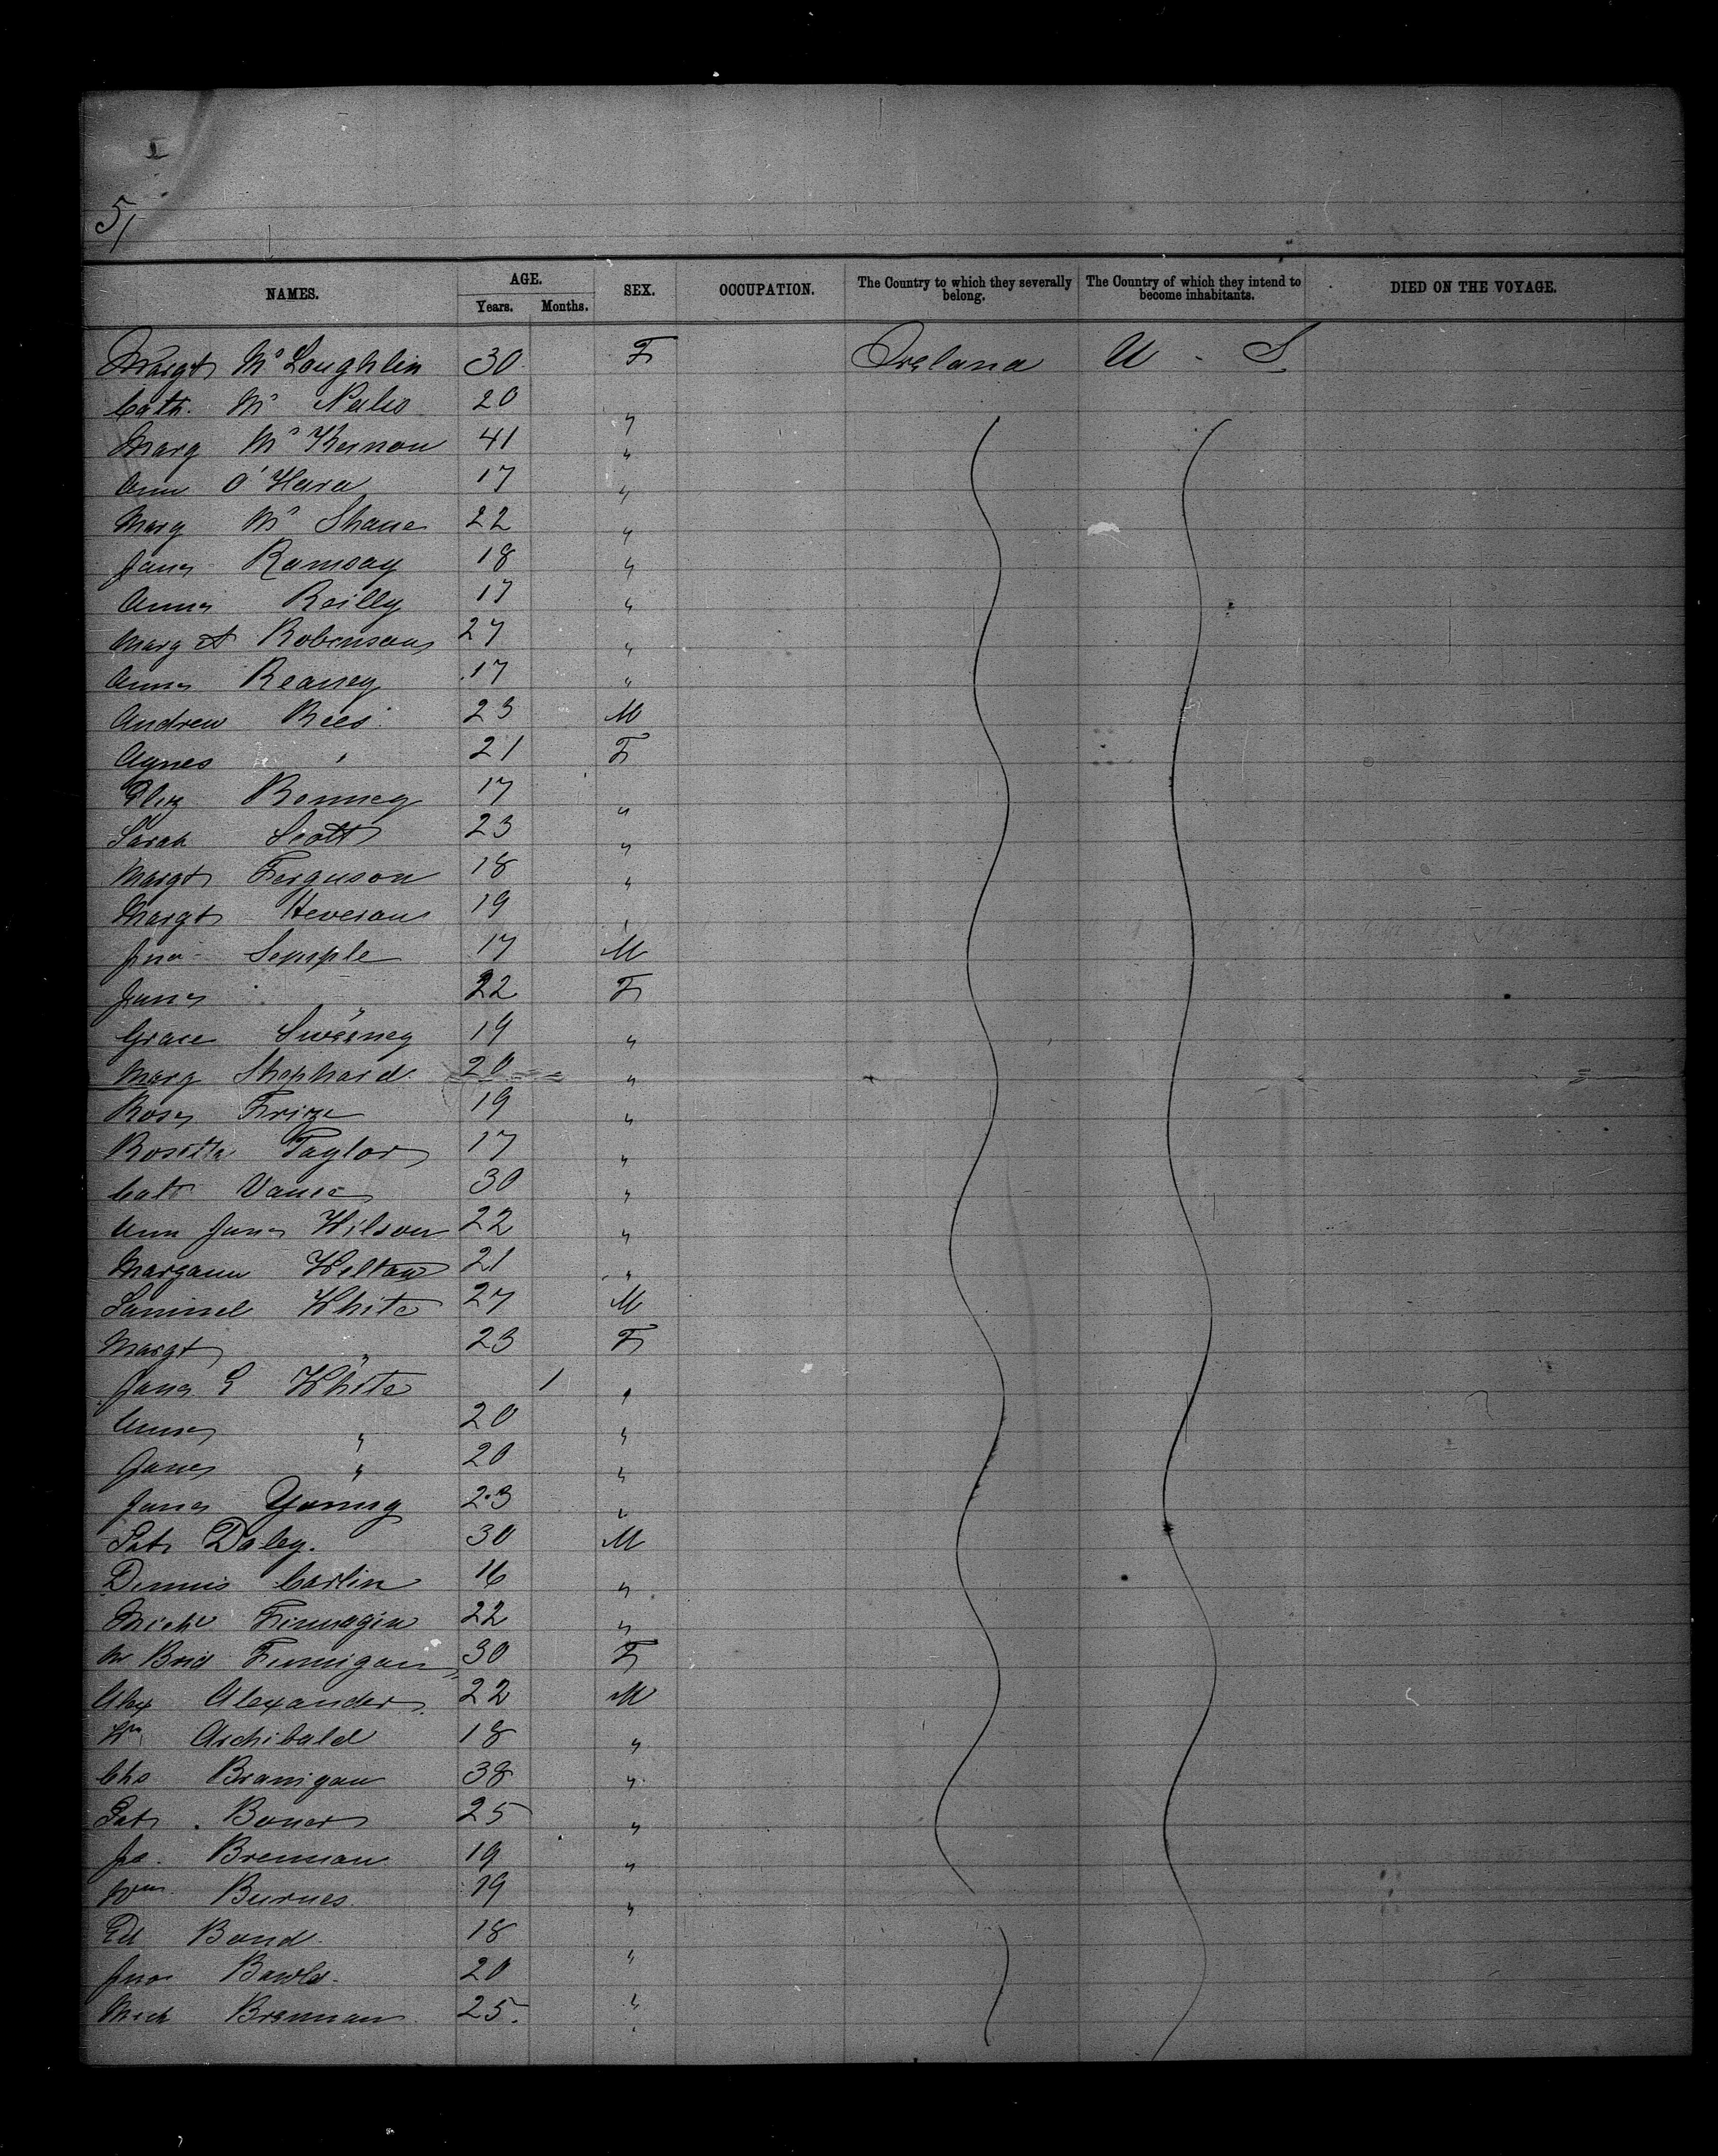 5/
NAMES. AGE. Years. Months. SEX. OCCUPATION. The Country to which they severally belong. The Country of which they intend to become inhabitants. DIED ON THE VOYAGE.
Margt McLoughlin 30 F Ireland U - S
Cath. Mc 20 "
Marg McKernon 41 "
Ann O'Hara 17 "
Marg McShane 22 "
Jane Ramsay 18 "
Anne Reilly 17 "
Marg A Robinson 27 "
Anne Reaney 17 "
Andrew Rees 23 M
Agnes " 21 F
Eliz 17 "
Sarah Scott 23 "
Margt Ferguson 18 "
Margt Heveran 19 "
Jno Semple 17 M
Jane " 22 F
Grace Sweeney 19 "
Marg Shephard 20 "
Rose Frize 19 "
Rosetta Taylor 17 "
Cath Vance 30 "
Ann Jane Wilson 22 "
Margann 21 "
Samuel White 27 M
Margt " 23 F
Jane E White 1 "
Anne " 20 "
Jane " 20 "
Jane Young 23 "
Pat Daley. 30 M
Dennis Carlin 16 "
Michl Finnagin 22 "
Brid Finnigan 30 F
Alex Alexander 22 M
Wm Archibald 18 "
Chs Branigan 38 "
Pat Boner 25 "
Jas. Brennan 19 "
Wm Burnes 19 "
Ed Bond 18 "
Jno 20 "
Mich Brennan 25. "